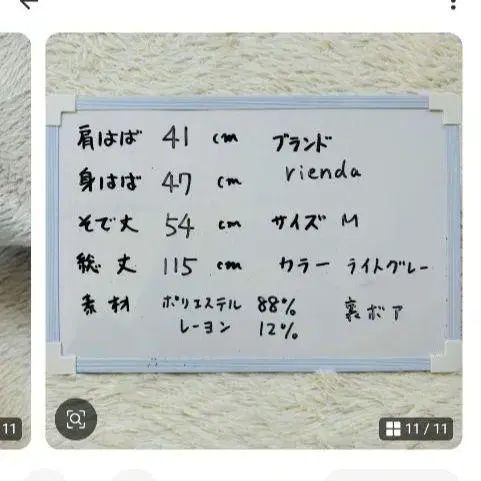 肩はば 41 cm
身はば 47 cm
そで丈 54 cm
総丈 115 cm
素材 ポリエステル 88%
レーヨン 12%
ブランド
rienda
サイズ M
カラー ライトグレー
裏ボア
11
11 / 11